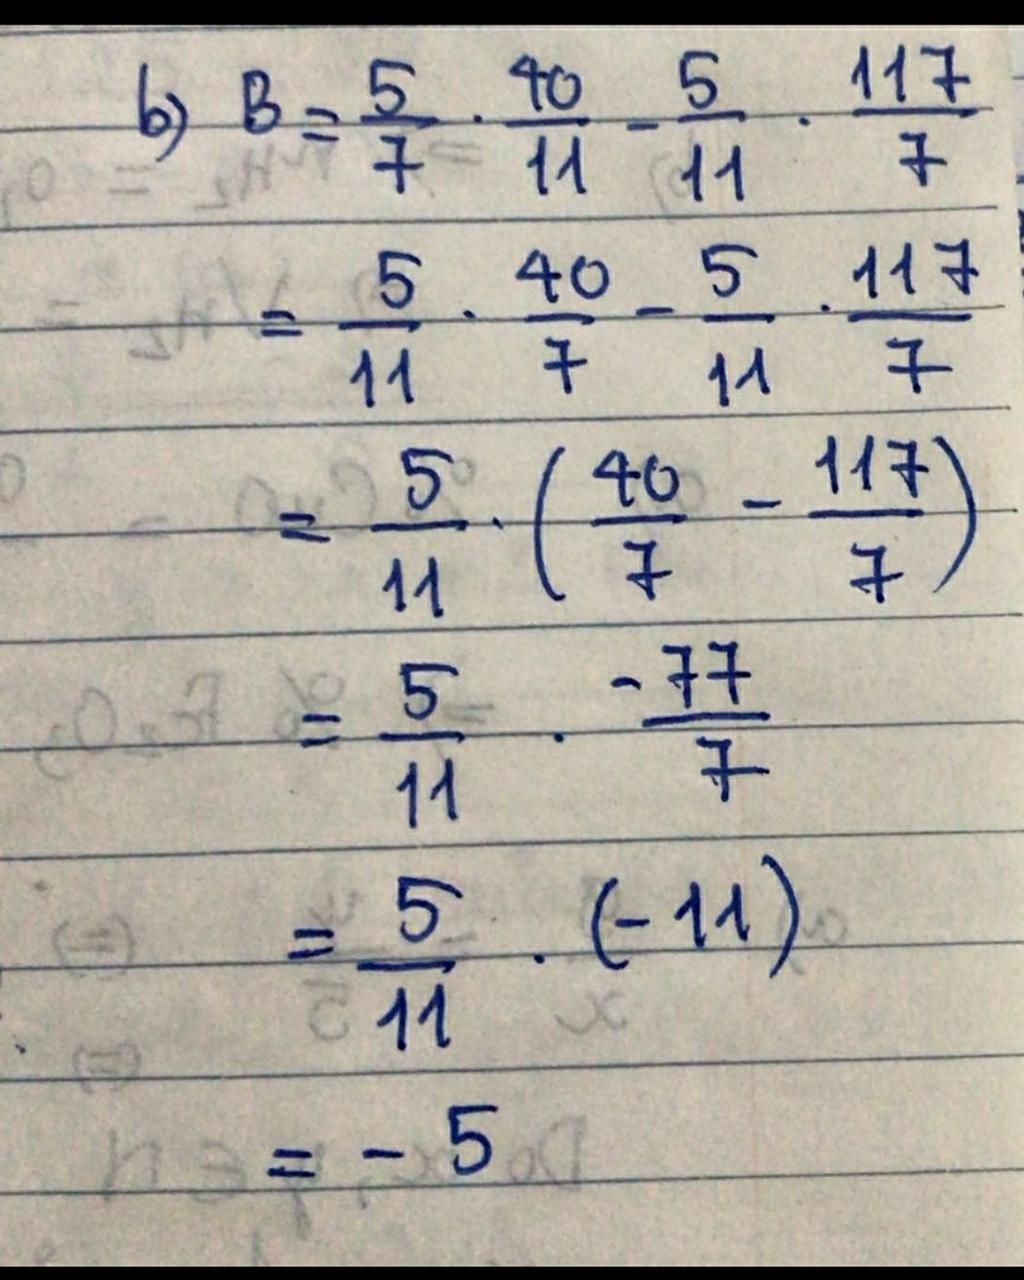 b) B = 5/7 · 40/11 - 5/11 · 117/7
= 5/11 · 40/7 - 5/11 · 117/7
= 5/11 · (40/7 - 117/7)
= 5/11 · -77/7
= 5/11 · (-11)
= -5